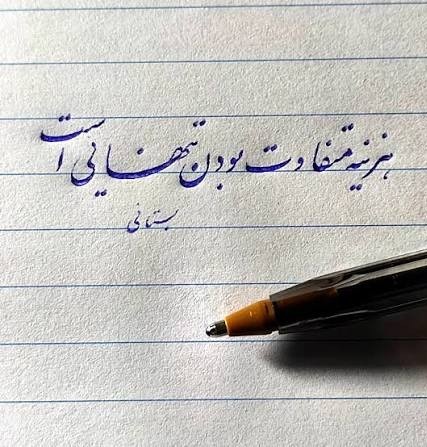 هزینه متفاوت بودن تنهایی است
بستانی